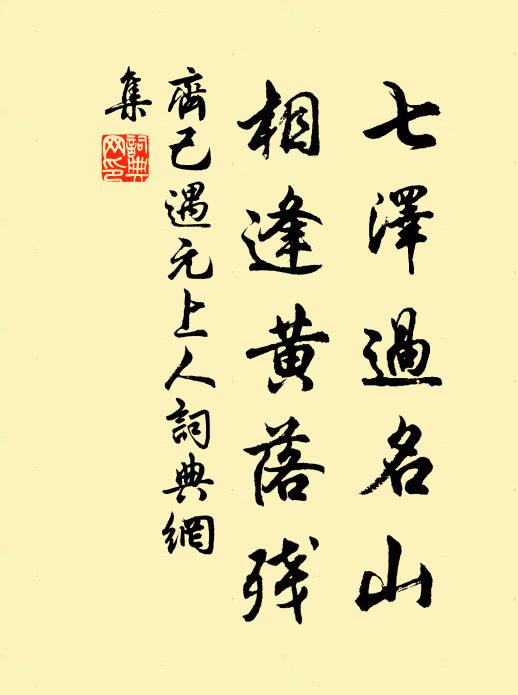 七澤過名山
相逢黃落殘
齊己遇元上人詞典網
集
詞典
网印